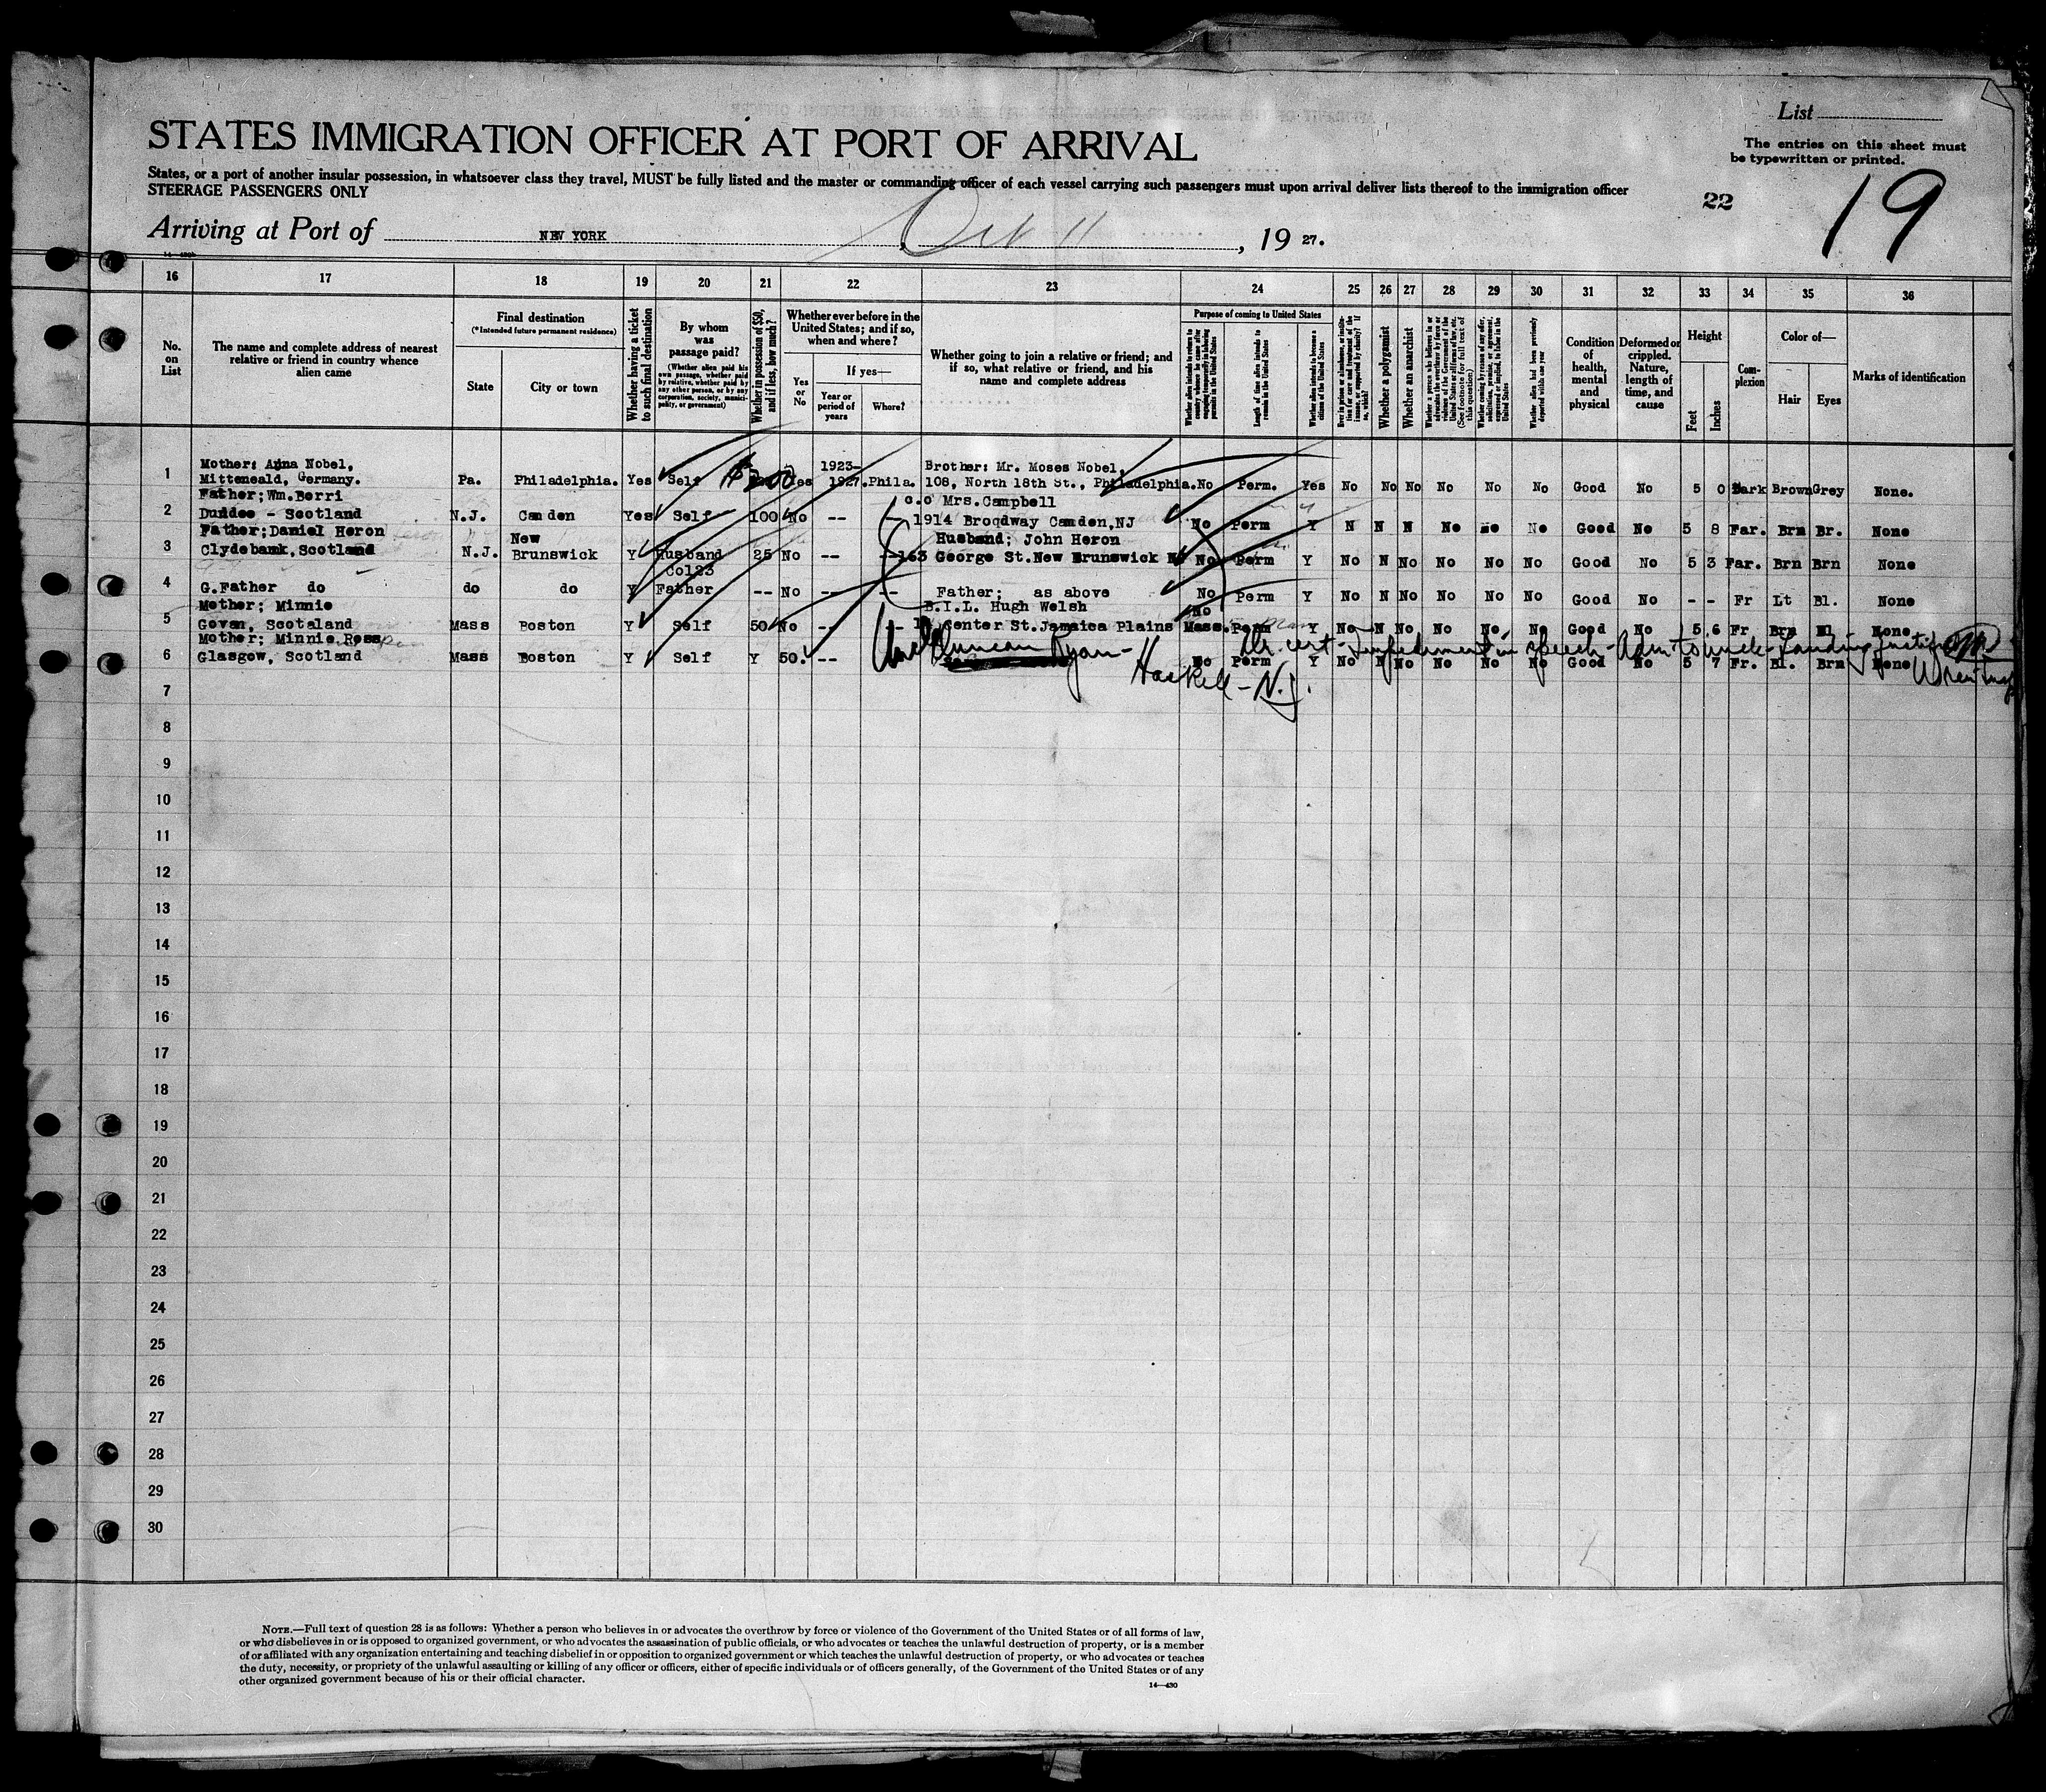 List
The entries on this sheet must
be typewritten or printed.
STATES IMMIGRATION OFFICER AT PORT OF ARRIVAL
States, or a port of another insular possession, in whatsoever class they travel, MUST be fully listed and the master or commanding officer of each vessel carrying such passengers must upon arrival deliver lists thereof to the immigration officer
STEERAGE PASSENGERS ONLY
22
19
Arriving at Port of NEW YORK, Oct 11, 19 27.
16 17 18 19 20 21 22 23 24 25 26 27 28 29 30 31 32 33 34 35 36
No. on List
The name and complete address of nearest relative or friend in country whence alien came
Final destination
(*Intended future permanent residence)
State
City or town
Whether having a ticket to such final destination
By whom was passage paid?
(Whether alien paid his own passage, whether paid by relative, whether paid by any other person, or by any corporation, society, municipality, or government)
Whether in possession of $50, and if less, how much?
Whether ever before in the United States; and if so, when and where?
Yes or No
If yes—
Year or period of years
Where?
Whether going to join a relative or friend; and if so, what relative or friend, and his name and complete address
Purpose of coming to United States
Length of time alien intends to remain in the United States
Whether alien intends to become a citizen of the United States
Whether a polygamist
Whether an anarchist
Condition of health, mental and physical
Deformed or crippled. Nature, length of time, and cause
Height
Feet
Inches
Complexion
Color of—
Hair
Eyes
Marks of identification
1 Mother: Anna Nobel, Mitteneald, Germany. Pa. Philadelphia. Yes Self $200 Yes 1923-1927. Phila. Brother: Mr. Moses Nobel, 108, North 18th St., Philadelphia. No Perm. Yes No No No No No No Good No 5 0 Dark Brown Grey None.
2 Father; Wm. Berri Dundee - Scotland N.J. Camden Yes Self 100 No -- -- c.o Mrs. Campbell 1914 Broodway Camden, NJ No Perm Y N N N No No No Good No 5 8 Far. Brn Br. None
3 Father; Daniel Heron Clydebank, Scotland N.J. New Brunswick Y Husband 25 No -- -- Husband; John Heron 163 George St. New Brunswick No Perm Y No N No No No No Good No 5 3 Far. Brn Brn None
4 G.Father do do do Y Father -- No -- -- Father; as above No Perm Y No N No No No No Good No - - Fr Lt Bl. None
5 Mother; Minnie Govan, Scotaland Mass Boston Y Self 50 No -- - B.I.L. Hugh Welsh Center St. Jamaica Plains Mass. No Perm Y No N No No No No Good No 5 6 Fr Brn Bl None
6 Mother; Minnie Ross Glasgow, Scotland Mass Boston Y Self Y 50. -- Uncle Duncan Ryan - Haskell - N.J. No Perm Y No N No No No No Good No 5 7 Fr. Bl. Brn None
Dr. cert - Impediment in speech - Adm to uncle - Landing
7
8
9
10
11
12
13
14
15
16
17
18
19
20
21
22
23
24
25
26
27
28
29
30
NOTE.—Full text of question 28 is as follows: Whether a person who believes in or advocates the overthrow by force or violence of the Government of the United States or of all forms of law,
or who disbelieves in or is opposed to organized government, or who advocates the assassination of public officials, or who advocates or teaches the unlawful destruction of property, or is a member
of or affiliated with any organization entertaining and teaching disbelief in or opposition to organized government or which teaches the unlawful destruction of property, or who advocates or teaches
the duty, necessity, or propriety of the unlawful assaulting or killing of any officer or officers, either of specific individuals or of officers generally, of the Government of the United States or of any
other organized government because of his or their official character.
14—430